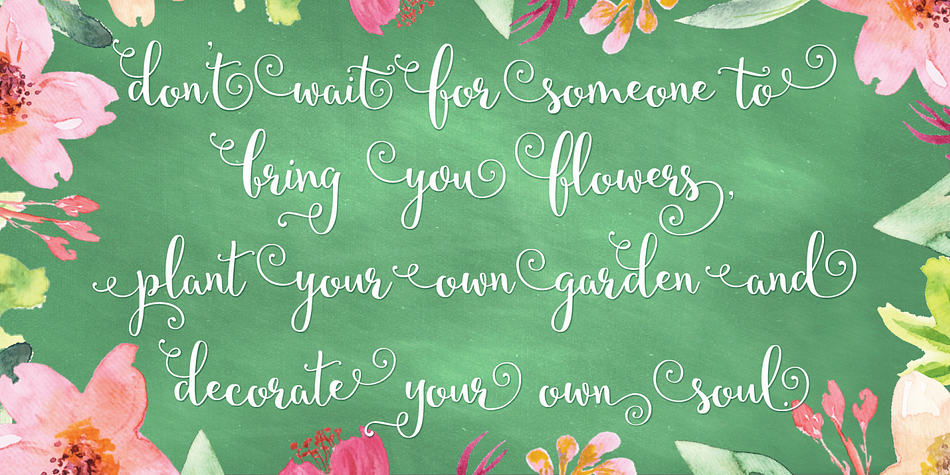 don't wait for someone to
bring you flowers,
plant your own garden and
decorate your own soul.